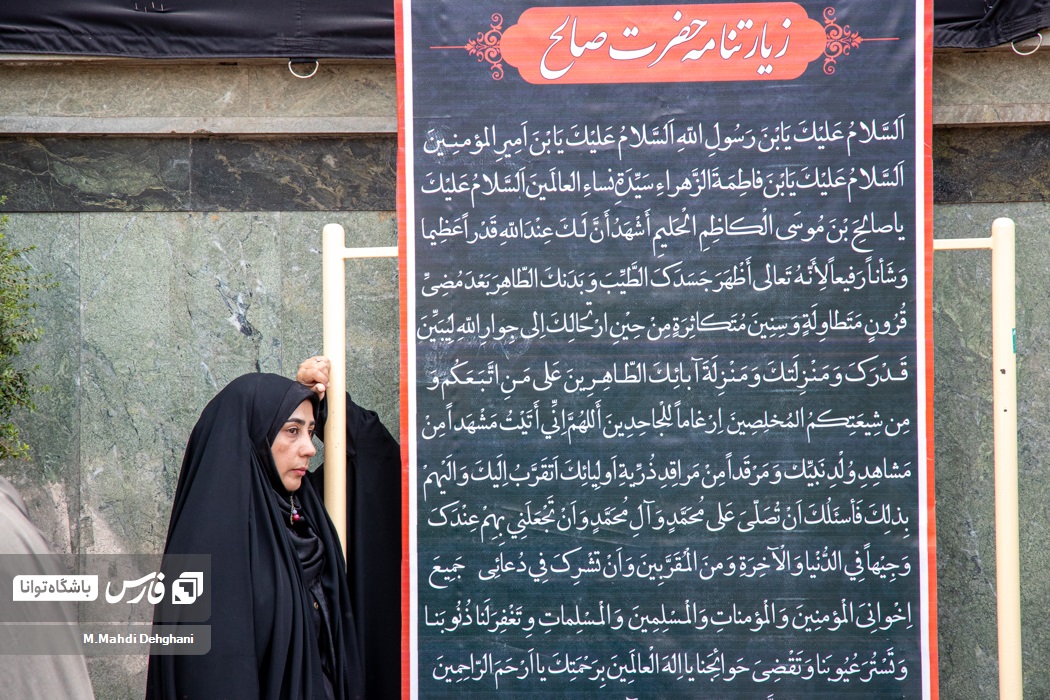 زیارتنامه حضرت صالح
اَلسَّلامُ عَلَیْكَ یَابْنَ رَسُولِ اللهِ اَلسَّلامُ عَلَیْكَ یَابْنَ اَمِیرِ المؤمنِـینَ
اَلسَّلامُ عَلَیْكَ یَابْنَ فاطِمَةَ الزَّهراءِ سَیِّدَةِ نِساءِ العالَمینَ اَلسَّلامُ عَلَیْكَ
یاصالِحَ بْنَ مُوسَی الْكاظِمِ الْحَلیمِ أَشْهَدُ أَنَّ لَكَ عِنْدَ اللهِ قَدْراً عَظیما
وَشَأناً رَفیعاً لِأَنَّهُ تَعالی أَظْهَرَ جَسَدَكَ الطَّیِّبَ وَبَدَنَكَ الطّاهِرَ بَعْدَ مُضِیِّ
قُرُونٍ مُتَطاوِلَةٍ وَسِنِینَ مُتَكاثِرَةٍ مِنْ حِیْنِ ارْتِحالِكَ اِلی جِوارِ اللهِ لِیُبَیِّنَ
قَـدْرَكَ وَ مَنْـزِلَتَكَ وَ مَنْـزِلَةَ آبـائِكَ الطّـاهِـرِینَ عَلی مَـنِ اتَّبَـعَـكُم وَ
مِن شِیعَتِكـمُ المُخلِصِینَ اِرْغاماً لِلْجاحِدِینَ أَللهُمَّ اِنِّی أَتَیْتُ مَشْهَداً مِنْ
مَشاهِدِ وُلْدِ نَبِیِّكَ وَ مَرْقَداً مِنْ مَراقِدِ ذُرِّیةِ اَولِیائِكَ اَتَقَرَّبُ اِلَیْكَ وَ اِلَیْهِمْ
بِذلِكَ فَأَسئَلُكَ اَنْ تُصَلِّیَ عَلی مُحَمَّدٍ وَ آلِ مُحَمَّدٍ وَ اَنْ تَجْعَلَنِی بِهِمْ عِنْدَكَ
وَجِیْهاً فِی الدُّنْیا وَ الْآخِرَةِ وَ مِنَ الْمُقَرَّبینَ وَ اَنْ تُشْرِكَ فِی دُعائِی جَمِیعَ
اِخْوانِیَ الْمؤْمِنِینَ وَ الْمؤمناتِ وَ الْمُسْلِمِینَ وَ الْمُسْلِماتِ وَ تَغْفِرَ لَنا ذُنُوبَنا
وَ تَسْتُرَ عُیُوبَنا وَ تَقْضِیَ حَوائِجَنا یا اِلهَ الْعالَمِینَ بِرَحْمَتِكَ یا اَرْحَمَ الرّاحِمِینَ
باشگاه توانا فارس
M.Mahdi Dehghani